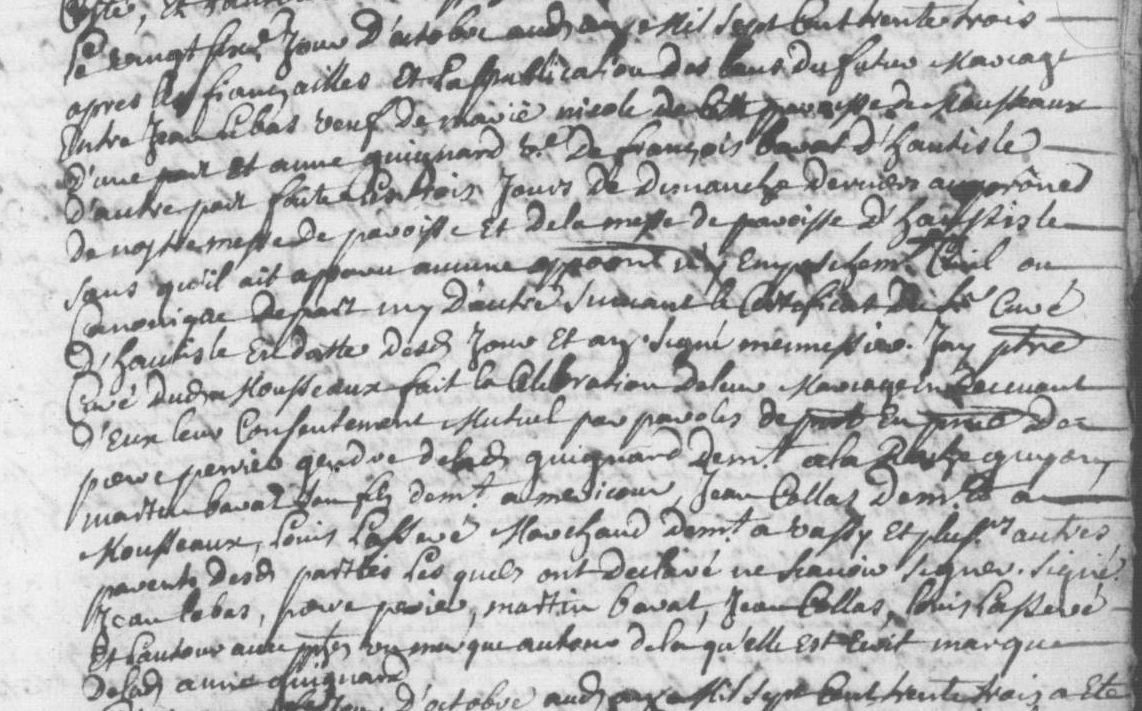 le vingt six.e Jour D'octobre aud. an Mil sept Cent trente trois
apres les fiançailles Et La publication des bans du futur Mariage
Entre Jean Lebas veuf de marie nicole de Cette paroisse de Mousseaux
D'une part Et anne guignard v.e De françois bavat d'hautisle
D'autre part faite Les trois Jours de Dimanche derniers aux prônes
de nostre messe de paroisse Et de la messe de paroisse D'hautisle
sans qu'il ait apparu aucune opposition ny Empeschem.t Civil ou
Canonique de part ny D'autre Suivant le Certificat du S.r Curé
D'hautisle En datte desd. Jour Et an signé mennessier. J'ay ptre
Curé dud. Mousseaux fait la Celebration de leur Mariage En Recevant
D'Eux leur Consentement Mutuel par paroles de pnt En pnce de
pierre perrier gendre de lad. guignard dem.t a la Roche guyon
martin bavat son fils dem.t a mericour, Jean Collas dem.t a
Mousseaux, Louis Lasseré Marchand dem.t a vassy Et plus.rs autres
parents desd. parties Lesquels ont declaré ne scavoir signer. signé
Jean lebas, pierre perier, martin bavat, Jean Collas, Louis Lasseré
Et autour une marque autour de laquelle Est Ecrit marque
de lad. anne guignard
D'octobre aud. an Mil sept Cent trente trois a Eté